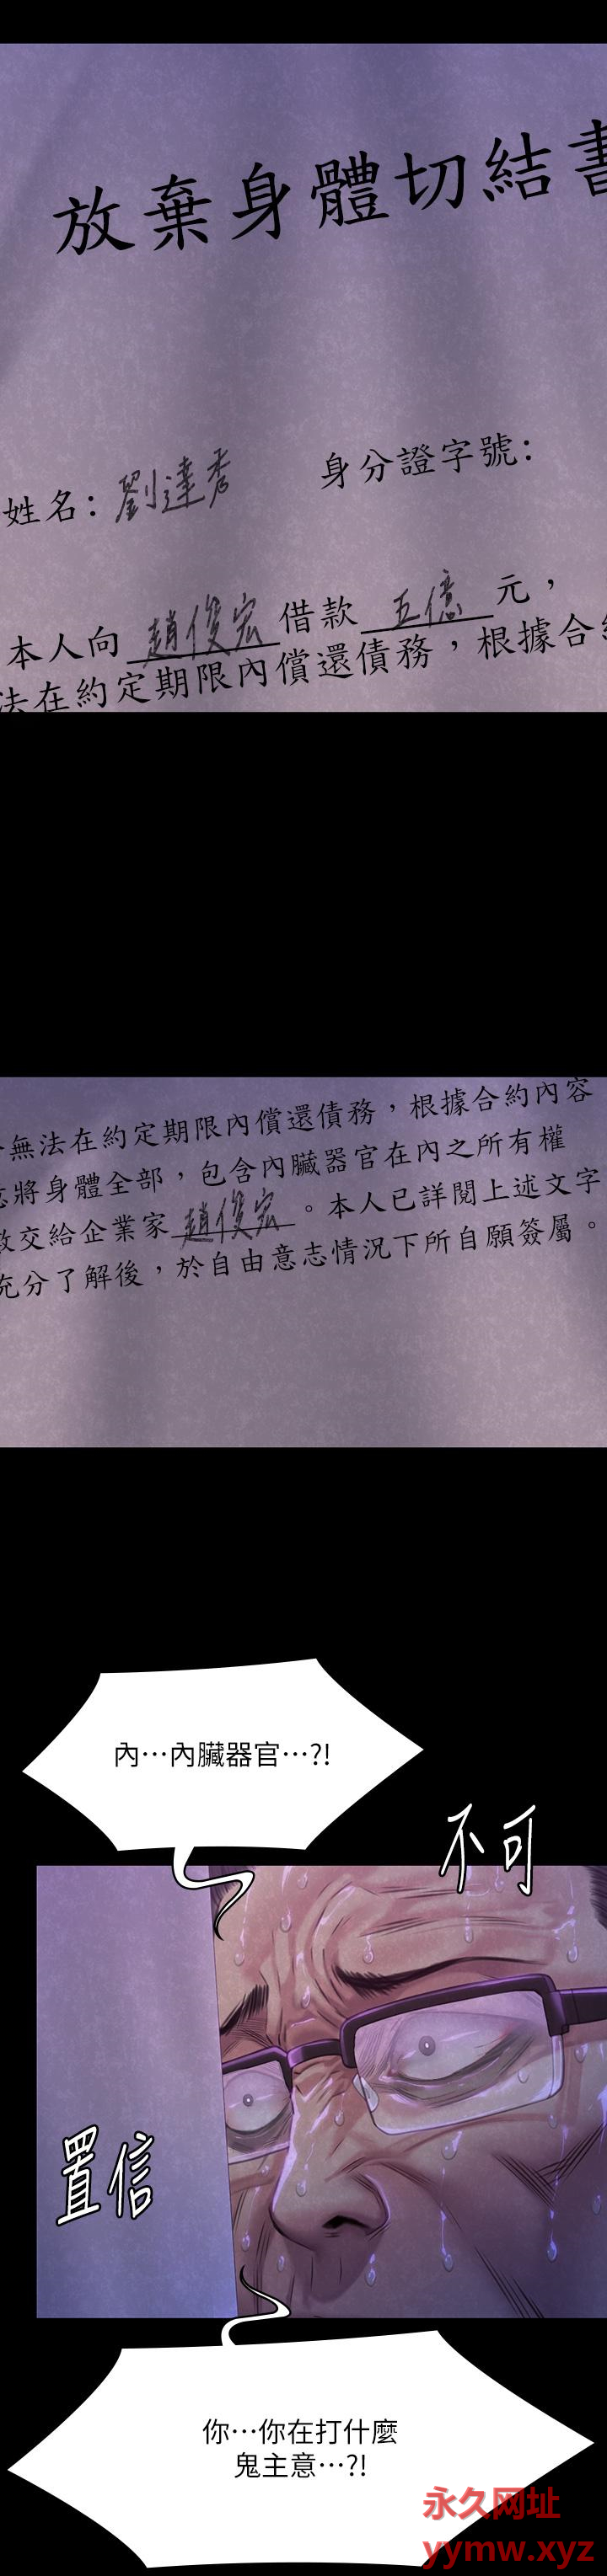 放棄身體切結書
姓名：劉達秀 身分證字號：
本人向趙俊宏借款五億元，
法在約定期限內償還債務，根據合約
無法在約定期限內償還債務，根據合約內容
將身體全部，包含內臟器官在內之所有權
交給企業家趙俊宏。本人已詳閱上述文字
充分了解後，於自由意志情況下所自願簽屬。
內⋯內臟器官⋯?!
不可
置信
你⋯你在打什麼
鬼主意⋯?!
永久网址
yymw.xyz